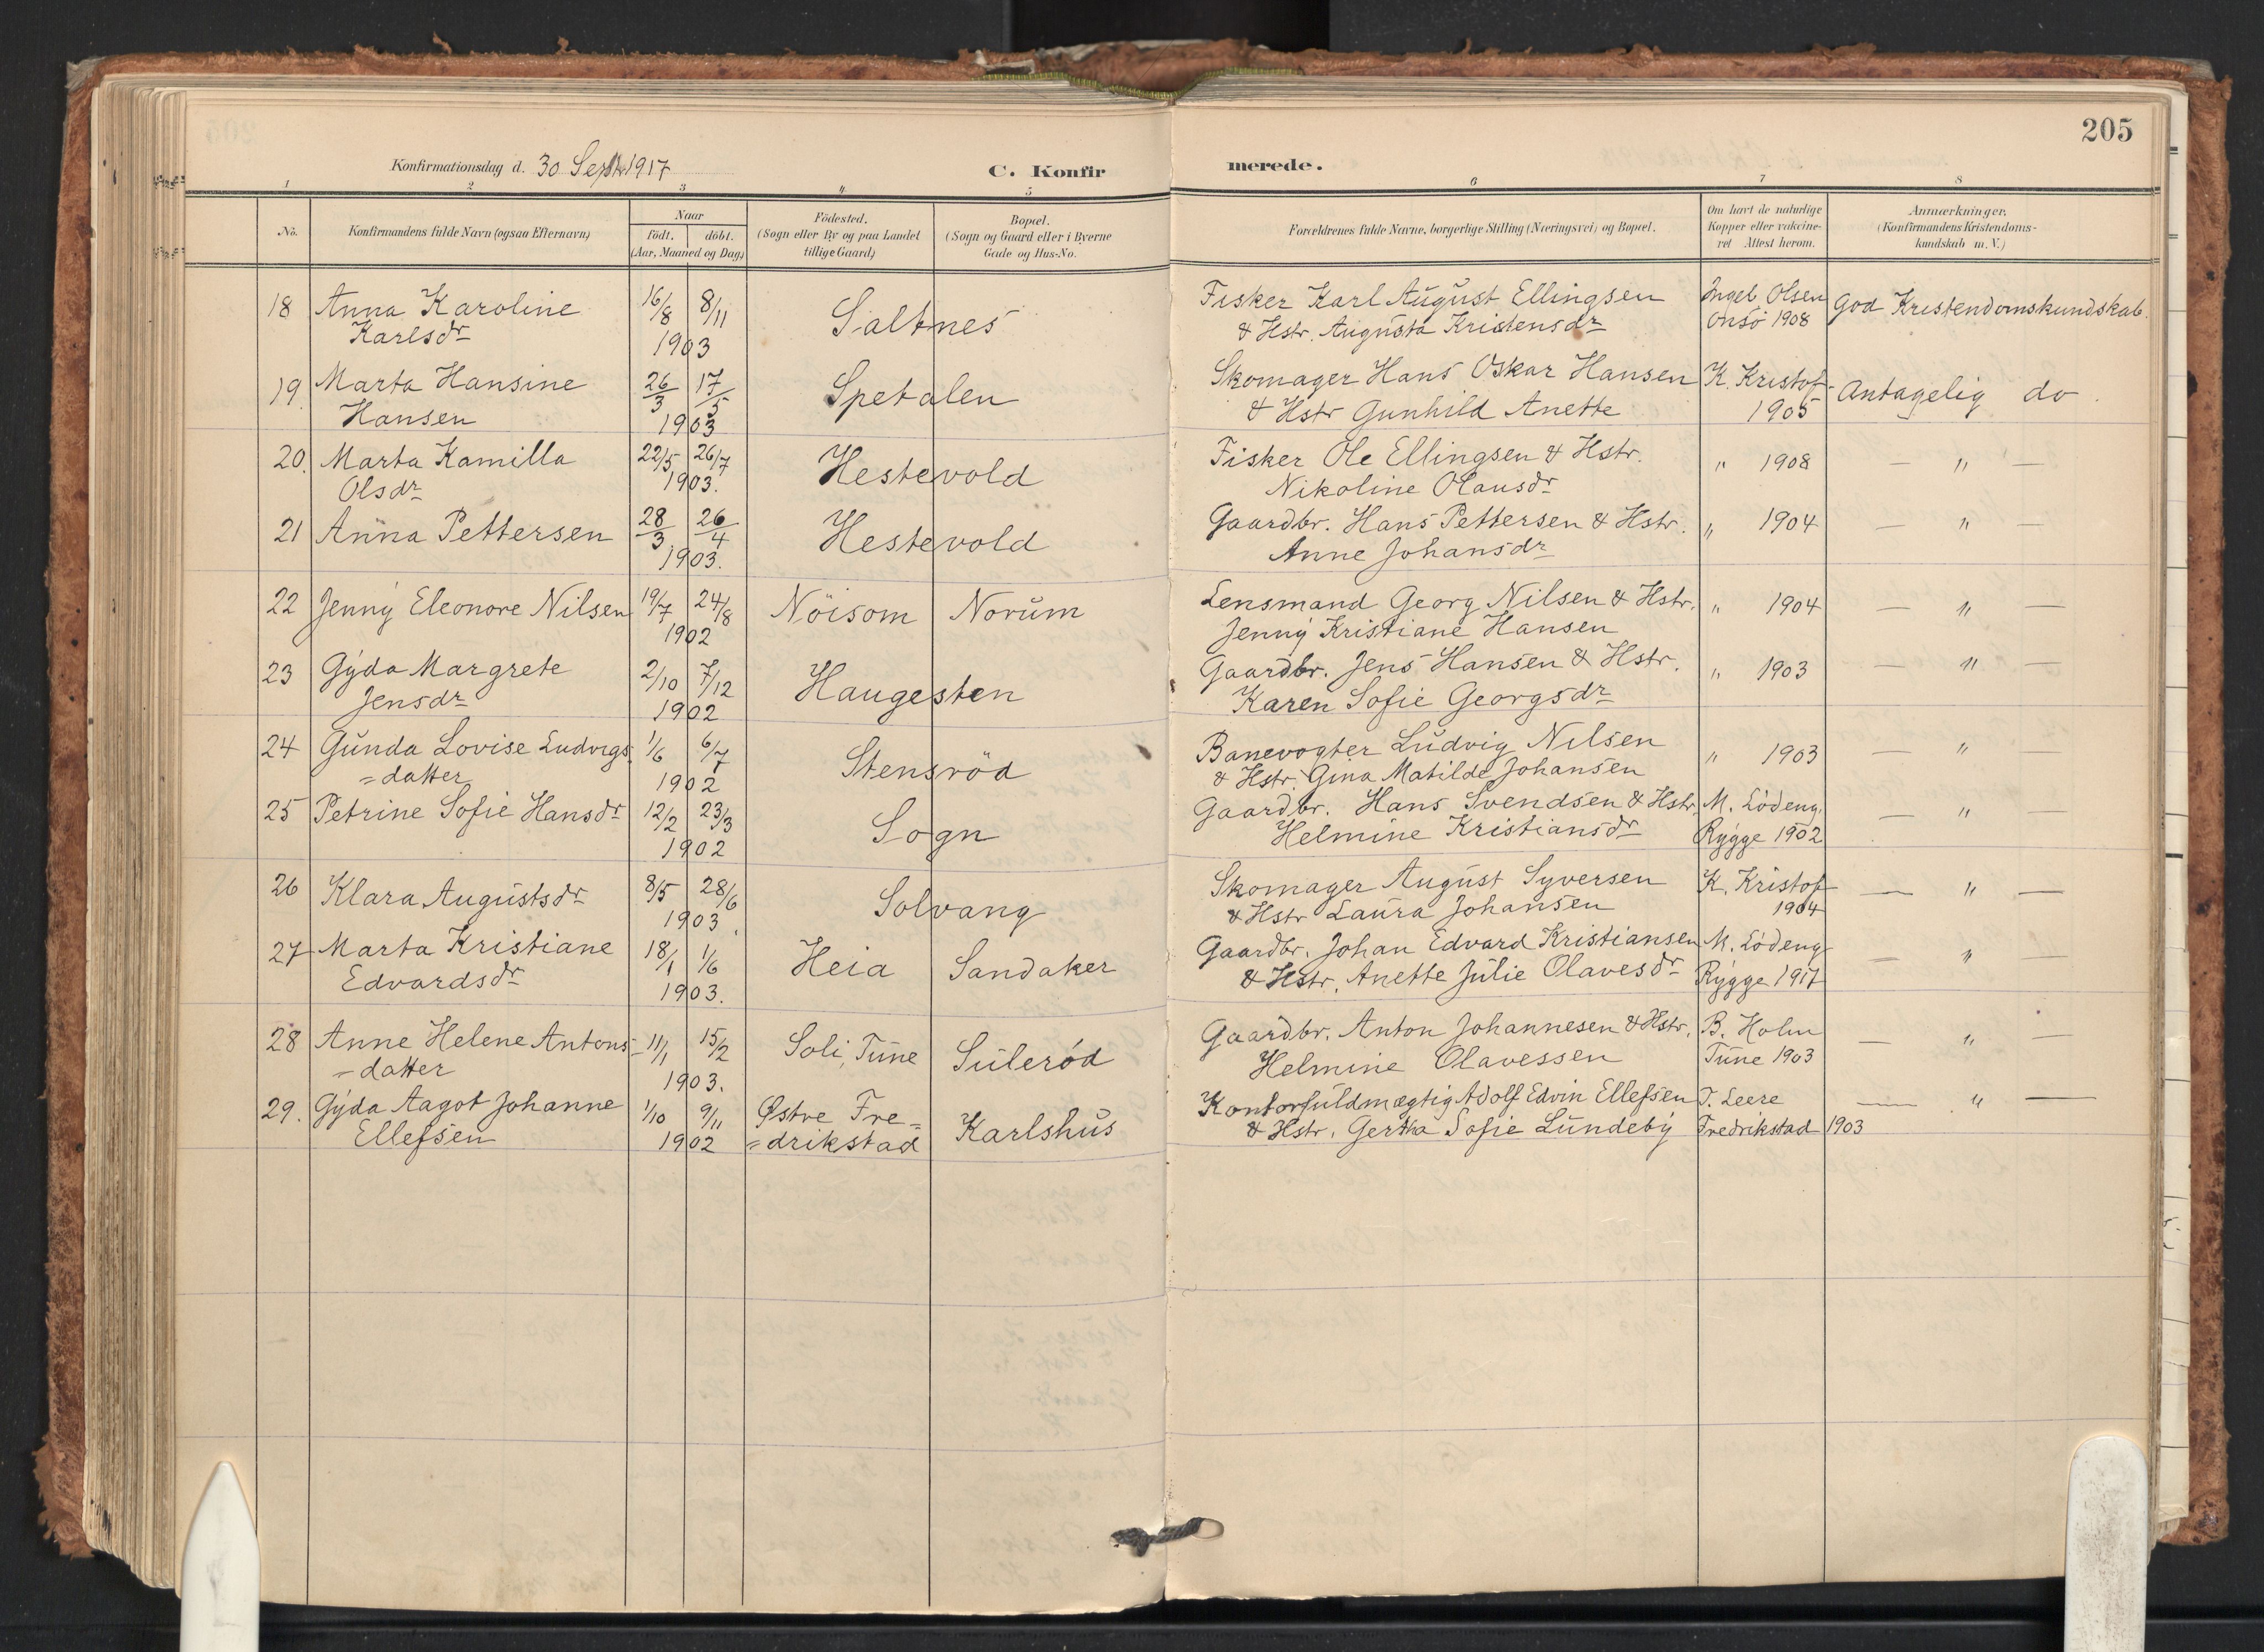 205
Konfirmationsdag d. 30 Septbr 1917
C. Konfirmerede.
1 2 3 4 5 6 7 8
No. Konfirmandens fulde Navn (ogsaa Efternavn) Naar födt. döbt. (Aar, Maaned og Dag) Födested. (Sogn eller By og paa Landet tillige Gaard) Bopæl. (Sogn og Gaard eller i Byerne Gade og Hus-No. Forældrenes fulde Navne, borgerlige Stilling (Næringsvei) og Bopæl. Om havt de naturlige Kopper eller vakcineret Attest herom. Anmærkninger. (Konfirmandens Kristendomskundskab m. V.)
18 Anna Karoline 16/8 8/11 Saltnes Fisker Karl August Ellingsen Ingeb. Olsen God Kristendomskundskab.
Karlsdr 1903 & Hstr. Augusta Kristensdr Onsö 1908
19. Marta Hansine 26/3 17/5 Spetalen Skomager Hans Oskar Hansen K. Kristof- Antagelig do.
Hansen 1903 & Hstr Gunhild Anette 1905
20. Marta Kamilla 22/5 26/7 Hestevold Fisker Ole Ellingsen & Hstr. " 1908 — " —
Olsdr 1903. Nikoline Olausdr
21 Anna Pettersen 28/3 26/4 Hestevold Gaardbr. Hans Pettersen & Hstr. " 1904 — " —
1903. Anne Johansdr
22 Jenny Eleonore Nilsen 19/7 24/8 Nöisom Norum Lensmand Georg Nilsen & Hstr. " 1904 — " —
1902 Jenny Kristiane Hansen
23 Gyda Margrete 2/10 7/12 Haugesten Gaardbr. Jens Hansen & Hstr. " 1903 — " —
Jensdr 1902 Karen Sofie Georgsdr
24 Gunda Lovise Ludvigs- 1/6 6/7 Stensröd Banevogter Ludvig Nilsen " 1903 — " —
=datter 1902 & Hstr. Gina Matilde Johansen
25 Petrine Sofie Hansdr 12/2 23/3 Sogn Gaardbr. Hans Svendsen & Hstr. M. Lödeng. — " —
1902 Helmine Kristiansdr Rygge 1902
26 Klara Augustsdr 8/5 28/6 Solvang Skomager August Syversen K. Kristof- — " —
1903. & Hstr Laura Johansen 1904
27 Marta Kristiane 18/1 1/6 Heia Sandaker Gaardbr. Johan Edvard Kristiansen M. Lödeng — " —
Edvardsdr 1903. & Hstr. Anette Julie Olavesdr Rygge 1917
28 Anne Helene Antons- 11/1 15/2 Soli, Tune Sulerød Gaardbr. Anton Johannesen & Hstr. B. Holm — " —
=datter 1903. Helmine Olavessen Tune 1903
29. Gyda Aagot Johanne 1/10 9/11 Østre Fre= Karlshus Kontorfuldmægtig Adolf Edvin Ellefsen T. Leere — " —
Ellefsen 1902 =drikstad & Hstr. Gertha Sofie Lundeby Fredrikstad 1903